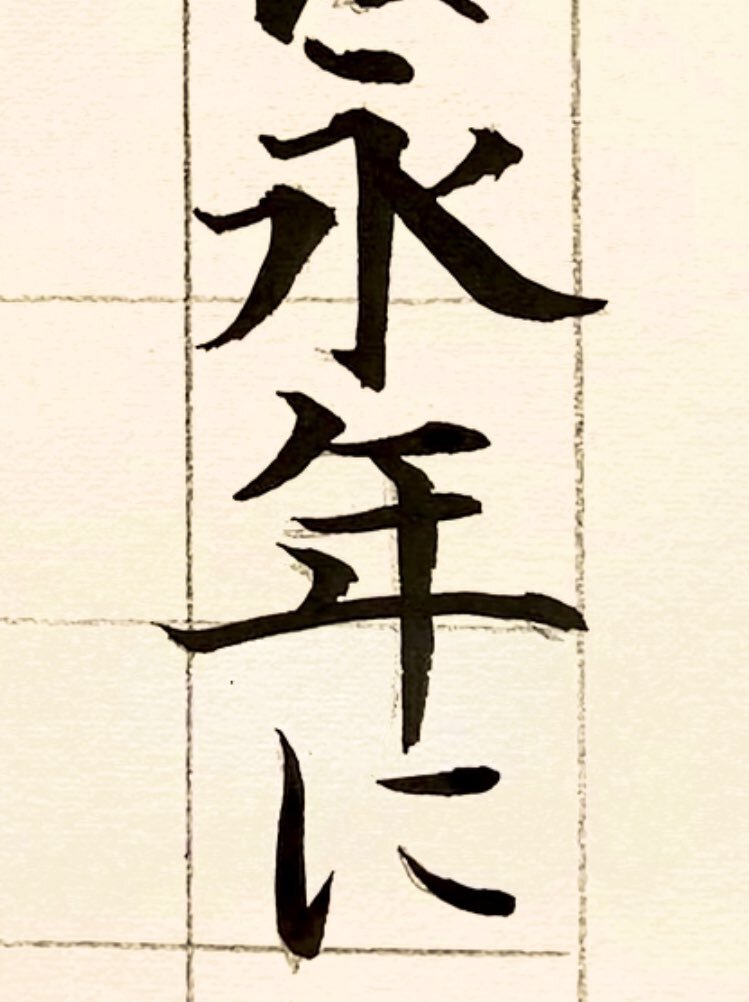 永年に